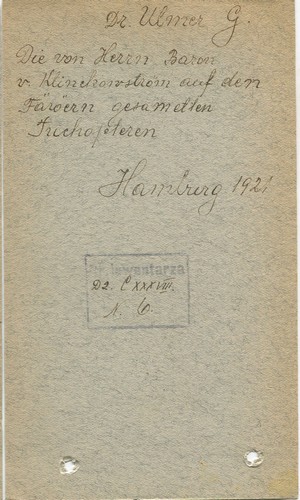 Dr. Ulmer G.
Die von Herrn Baron
v. Klinckowström auf den
Färöern gesamelten
Trichopteren
Hamburg 1921
inwentarza
Dz. C XXXVIII.
N. 6.